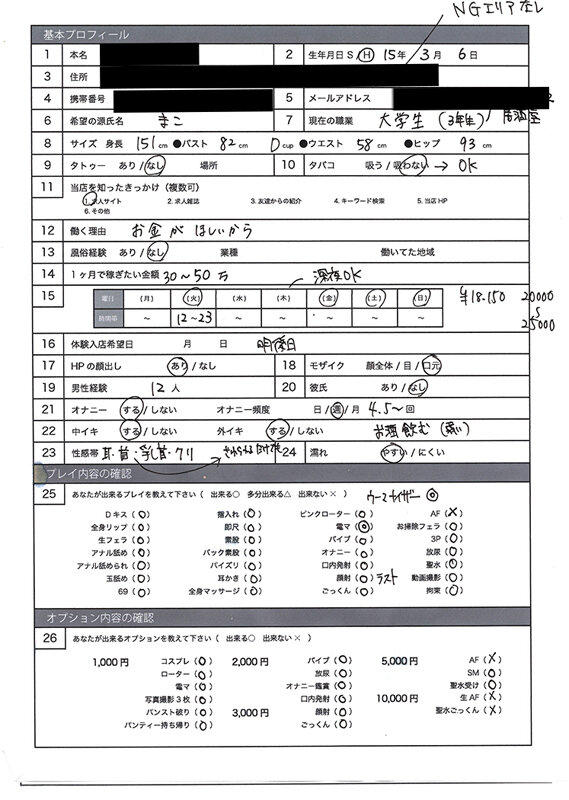 NGエリアなし
基本プロフィール
1 本名 2 生年月日 S / H 15年 3月 6日
3 住所
4 携帯番号 5 メールアドレス
6 希望の源氏名 まこ 7 現在の職業 大学生(3年生) 居酒屋
8 サイズ 身長 151cm ●バスト 82cm Dcup ●ウエスト 58cm ●ヒップ 93cm
9 タトゥー あり / なし 場所 10 タバコ 吸う / 吸わない → OK
11 当店を知ったきっかけ(複数可)
1.求人サイト 2.求人雑誌 3.友達からの紹介 4.キーワード検索 5.当店HP
6.その他
12 働く理由 お金がほしいから
13 風俗経験 あり / なし 業種 働いてた地域
14 1ヶ月で稼ぎたい金額 30~50万 深夜OK
15 曜日 (月) (火) (水) (木) (金) (土) (日) ¥18.150 20000
時間帯 ~ 12~23 ~ ~ ~ ~ ~ 25000
16 体験入店希望日 月 日
17 HPの顔出し あり / なし 18 モザイク 顔全体 / 目 / 口元
19 男性経験 12人 20 彼氏 あり / なし
21 オナニー する / しない オナニー頻度 日 / 週 / 月 4.5~回
22 中イキ する / しない 外イキ する / しない お酒飲む
23 性感帯 耳・首・乳首・クリ 24 濡れ やすい / にくい
プレイ内容の確認
25 あなたが出来るプレイを教えて下さい( 出来る○ 多分出来る△ 出来ない× ) ウーマナイザー ◎
Dキス(○) 指入れ(○) ピンクローター(○) AF(×)
全身リップ(○) 即尺(○) 電マ(◎) お掃除フェラ(○)
生フェラ(○) 素股(○) バイブ(○) 3P(○)
アナル舐め(○) バック素股(○) オナニー(○) 放尿(○)
アナル舐められ(○) パイズリ(○) 口内発射(○) 聖水(○)
玉舐め(○) 耳かき(○) 顔射(○) ラスト 動画撮影(○)
69(○) 全身マッサージ(○) ごっくん(○) 拘束(○)
オプション内容の確認
26 あなたが出来るオプションを教えて下さい( 出来る○ 出来ない× )
1,000円 コスプレ(○) 2,000円 バイブ(○) 5,000円 AF(×)
ローター(○) 放尿(○) SM(○)
電マ(○) オナニー鑑賞(○) 聖水受け(○)
写真撮影3枚(○) 口内発射(○) 10,000円 生AF(×)
パンスト破り(○) 3,000円 顔射(○) 聖水ごっくん(×)
パンティー持ち帰り(○) ごっくん(○)